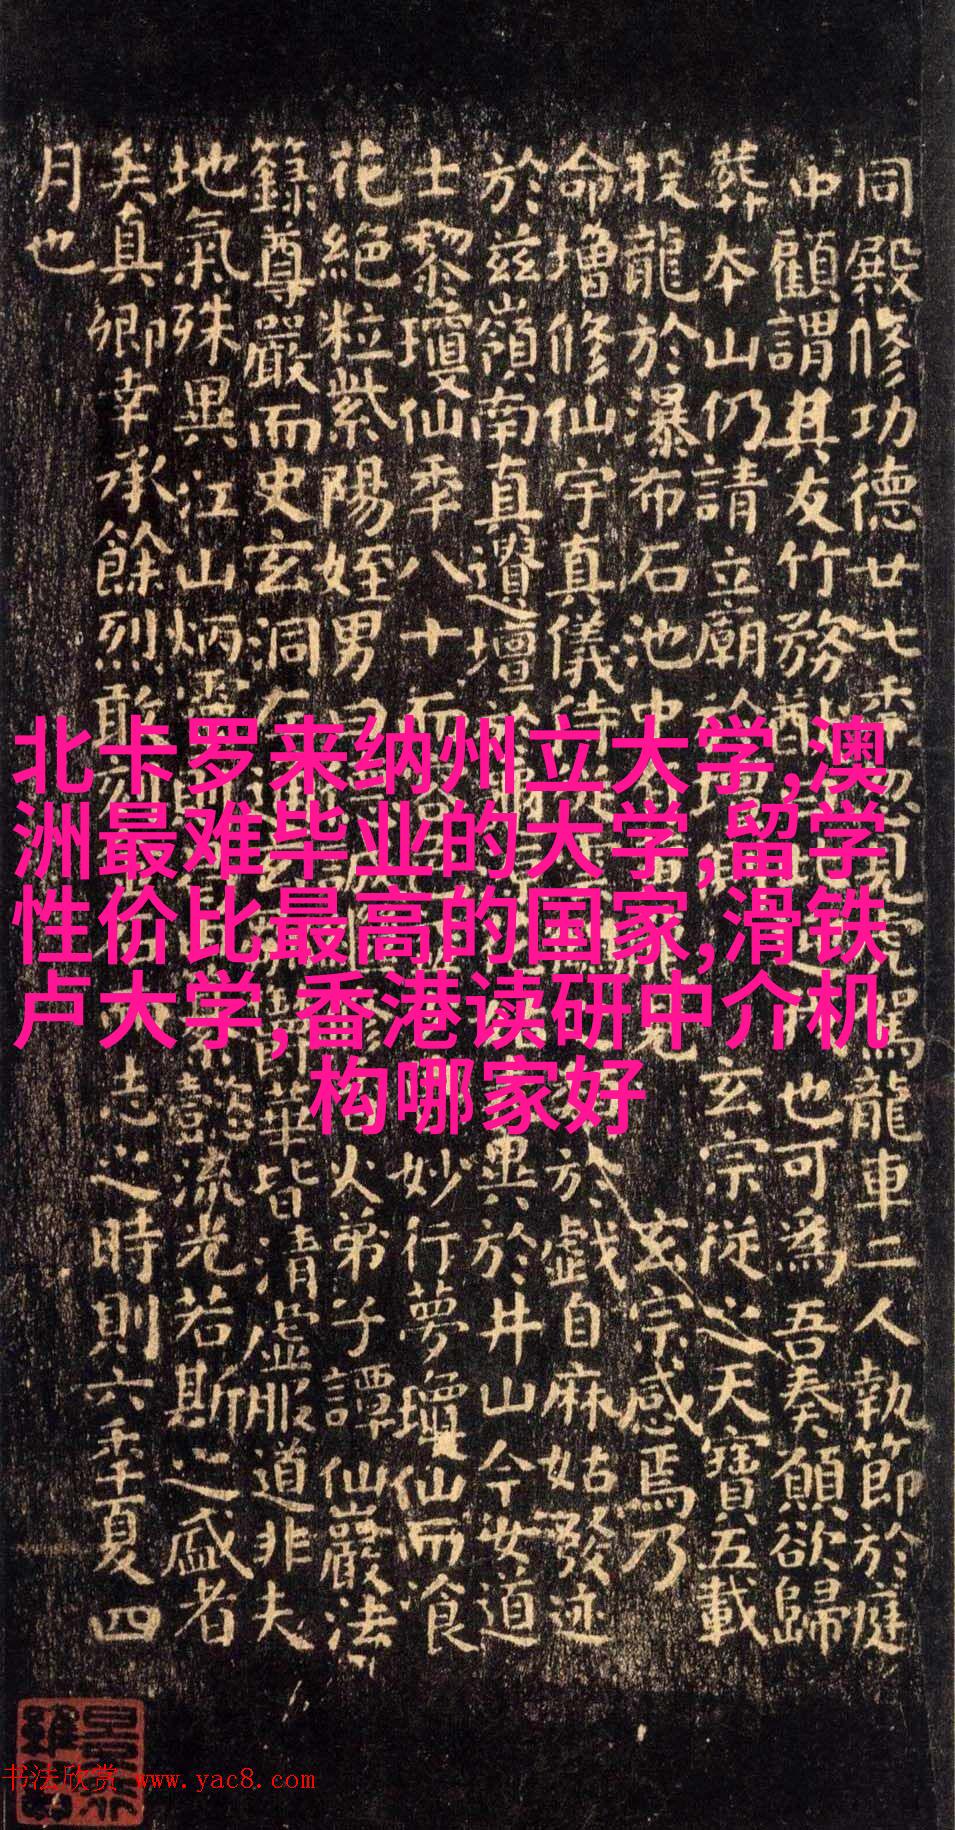 同殿修功德廿七年駕龍車二人執節於庭
中顧謂其友竹務猷也可為吾奏願欲歸
葬本山仍請立廟於壇玄宗從之天寶五載
投龍於瀑布石池中見玄宗感焉乃
命增修仙宇真儀侍於戲自麻姑發迹
於茲嶺南真遺壇於異於井山今女道
士黎瓊仙年八十而容妙行夢瓊仙而飡
花絕粒紫陽姪男火弟子譚仙巖法
籙尊嚴而史玄洞左通鬱華皆清虛服道非夫
地氣殊異江山炳靈懿流光若斯之盛者
矣真卿幸承餘烈敢刻志之時則六年夏四
月也
北卡罗来纳州立大学,澳
洲最难毕业的大学,留学
性价比最高的国家,滑铁
卢大学,香港读研中介机
构哪家好
书法欣赏 www.yac8.com